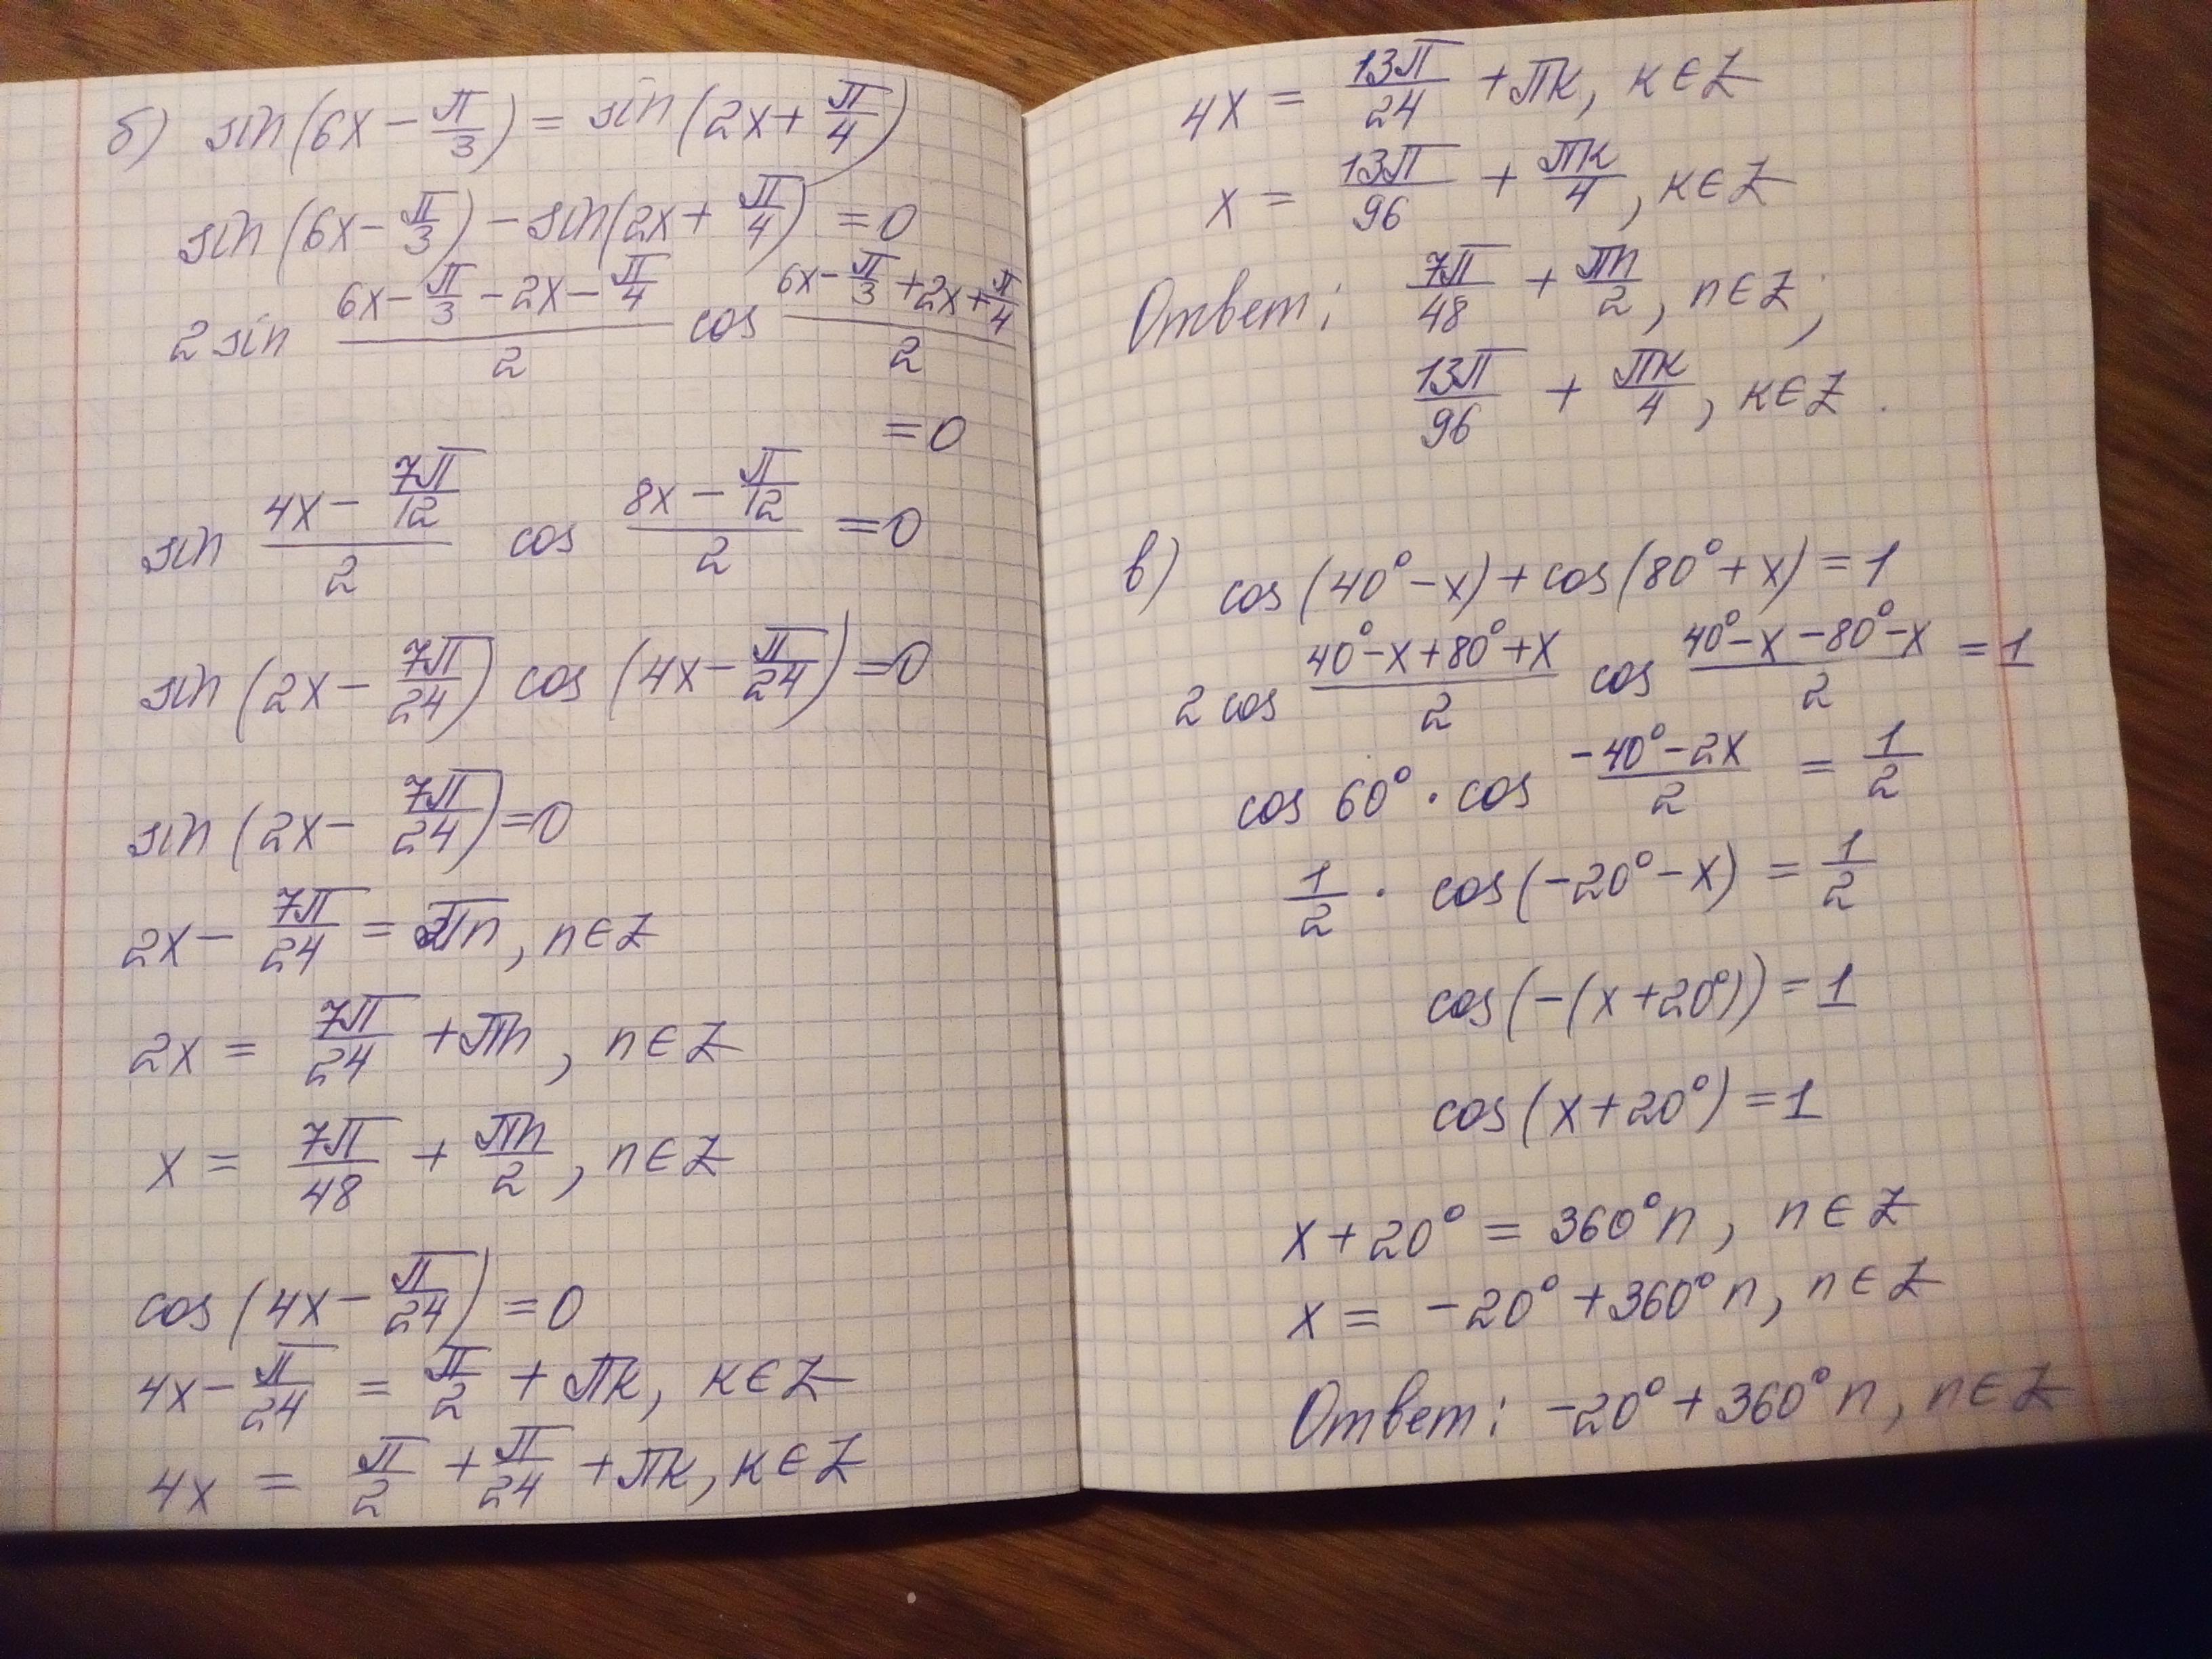 б) sin(6x - π/3) = sin(2x + π/4)
sin(6x - π/3) - sin(2x + π/4) = 0
2 sin (6x - π/3 - 2x - π/4)/2 cos (6x - π/3 + 2x + π/4)/2
= 0
sin (4x - 7π/12)/2 cos (8x - π/12)/2 = 0
sin(2x - 7π/24) cos(4x - π/24) = 0
sin(2x - 7π/24) = 0
2x - 7π/24 = πn, n∈Z
2x = 7π/24 + πn, n∈Z
x = 7π/48 + πn/2, n∈Z
cos(4x - π/24) = 0
4x - π/24 = π/2 + πк, к∈Z
4x = π/2 + π/24 + πк, к∈Z
4x = 13π/24 + πк, к∈Z
x = 13π/96 + πк/4, к∈Z
Ответ: 7π/48 + πn/2, n∈Z;
13π/96 + πк/4, к∈Z.
в) cos(40° - x) + cos(80° + x) = 1
2 cos (40° - x + 80° + x)/2 cos (40° - x - 80° - x)/2 = 1
cos 60° · cos (-40° - 2x)/2 = 1/2
1/2 · cos(-20° - x) = 1/2
cos(-(x + 20°)) = 1
cos(x + 20°) = 1
x + 20° = 360°n, n∈Z
x = -20° + 360°n, n∈Z
Ответ: -20° + 360°n, n∈Z